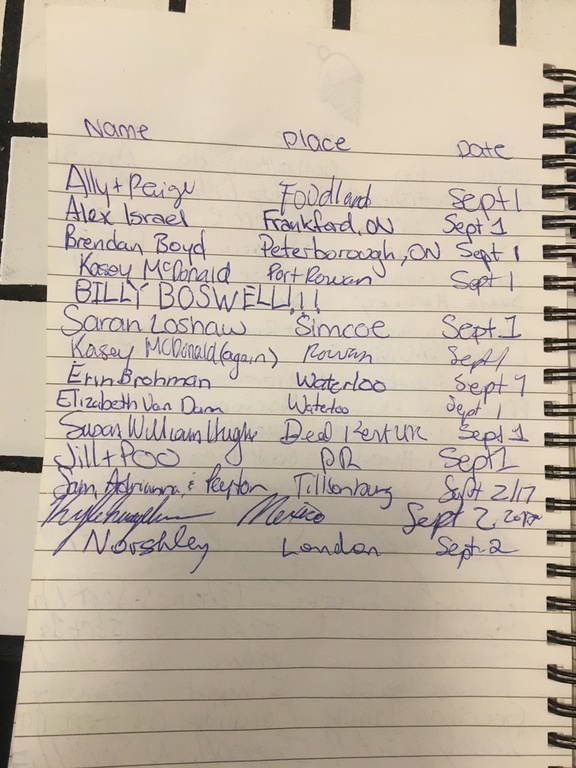 Name Place Date
Ally + Paige Foodland Sept 1
Alex Israel Frankford, ON Sept 1
Brendan Boyd Peterborough, ON Sept 1
Kasey McDonald Port Rowan Sept 1
BILLY BOSWELL!!!
Sarah Loshaw Simcoe Sept. 1
Kasey McDonald (again) Rowan Sept 1
Erin Brohman Waterloo Sept 1
Elizabeth Van Dam Waterloo Sept 1
Susan William Hugh Deal Kent UK Sept 1
Jill + POO PR Sept 1
Sam, Adrianna, & Peyton Tillsonburg Sept 2/17
Mexico Sept 2, 2017
Norshley London Sept. 2